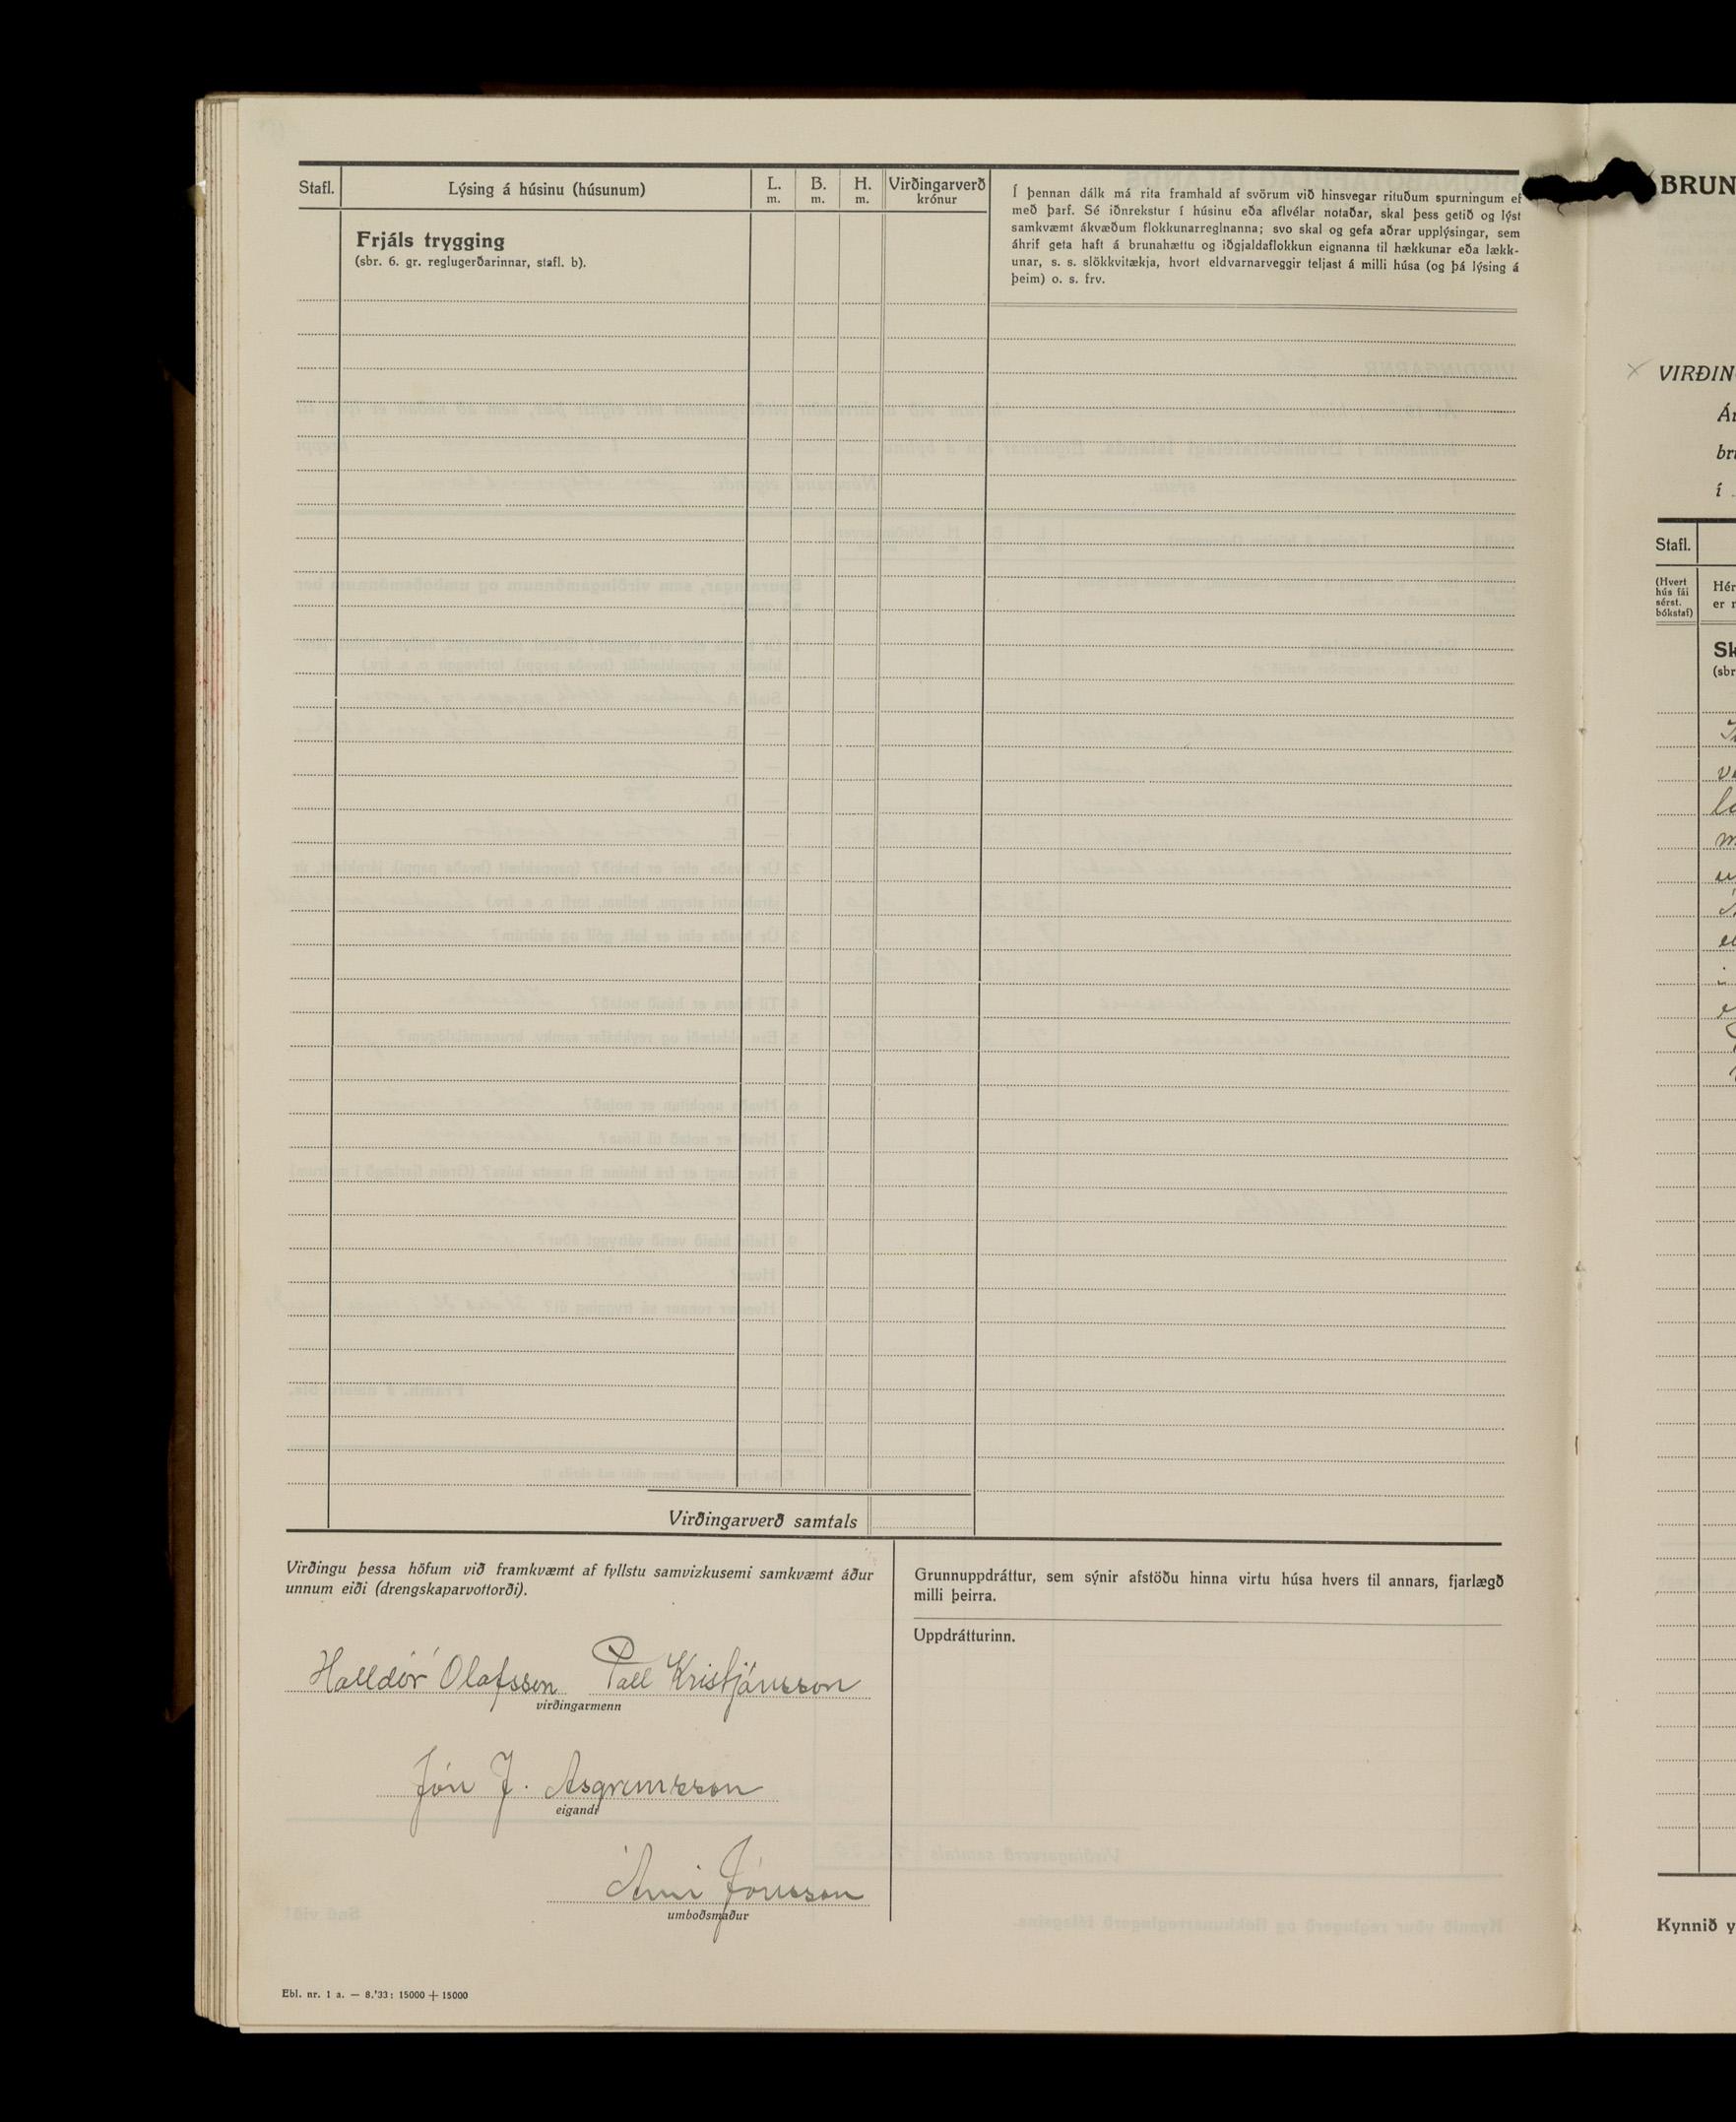 Stafl.
Lýsing á húsinu (húsunum)
L.
m.
B.
m.
H.
m.
Virðingarverð
krónur
Frjáls trygging
(sbr. 6. gr. reglugerðarinnar, stafl. b).
Í þennan dálk má rita framhald af svörum við hinsvegar rituðum spurningum ef
með þarf. Sé iðnrekstur í húsinu eða aflvélar notaðar, skal þess getið og lýst
samkvæmt ákvæðum flokkunarreglnanna; svo skal og gefa aðrar upplýsingar, sem
áhrif geta haft á brunahættu og iðgjaldaflokkun eignanna til hækkunar eða lækk-
unar, s. s. slökkvitækja, hvort eldvarnarveggir teljast á milli húsa (og þá lýsing á
þeim) o. s. frv.
Virðingarverð samtals
Virðingu þessa höfum við framkvæmt af fyllstu samvizkusemi samkvæmt áður
unnum eiði (drengskaparvottorði).
Halldór Olafsson Páll Kristjánsson
virðingarmenn
Jón J. Asgrimsson
eigandi
Árni Jónsson
umboðsmaður
Grunnuppdráttur, sem sýnir afstöðu hinna virtu húsa hvers til annars, fjarlægð
milli þeirra.
Uppdrátturinn.
Ebl. nr. 1 a. — 8.'33: 15000 + 15000
BRUN
VIRÐIN
Ár
bru
í
Stafl.
(Hvert
hús fái
sérst.
bókstaf)
Hér
er n
Sk
(sbr
Kynnið y